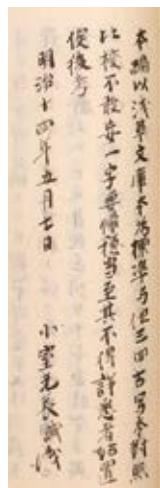 本編以浅草文庫本為標準与但三四古写本對照
比挍不敢妄一字要僅穏当至其不得詳悉者姑置
俟後考
明治十四年五月七日　小室元長誠識